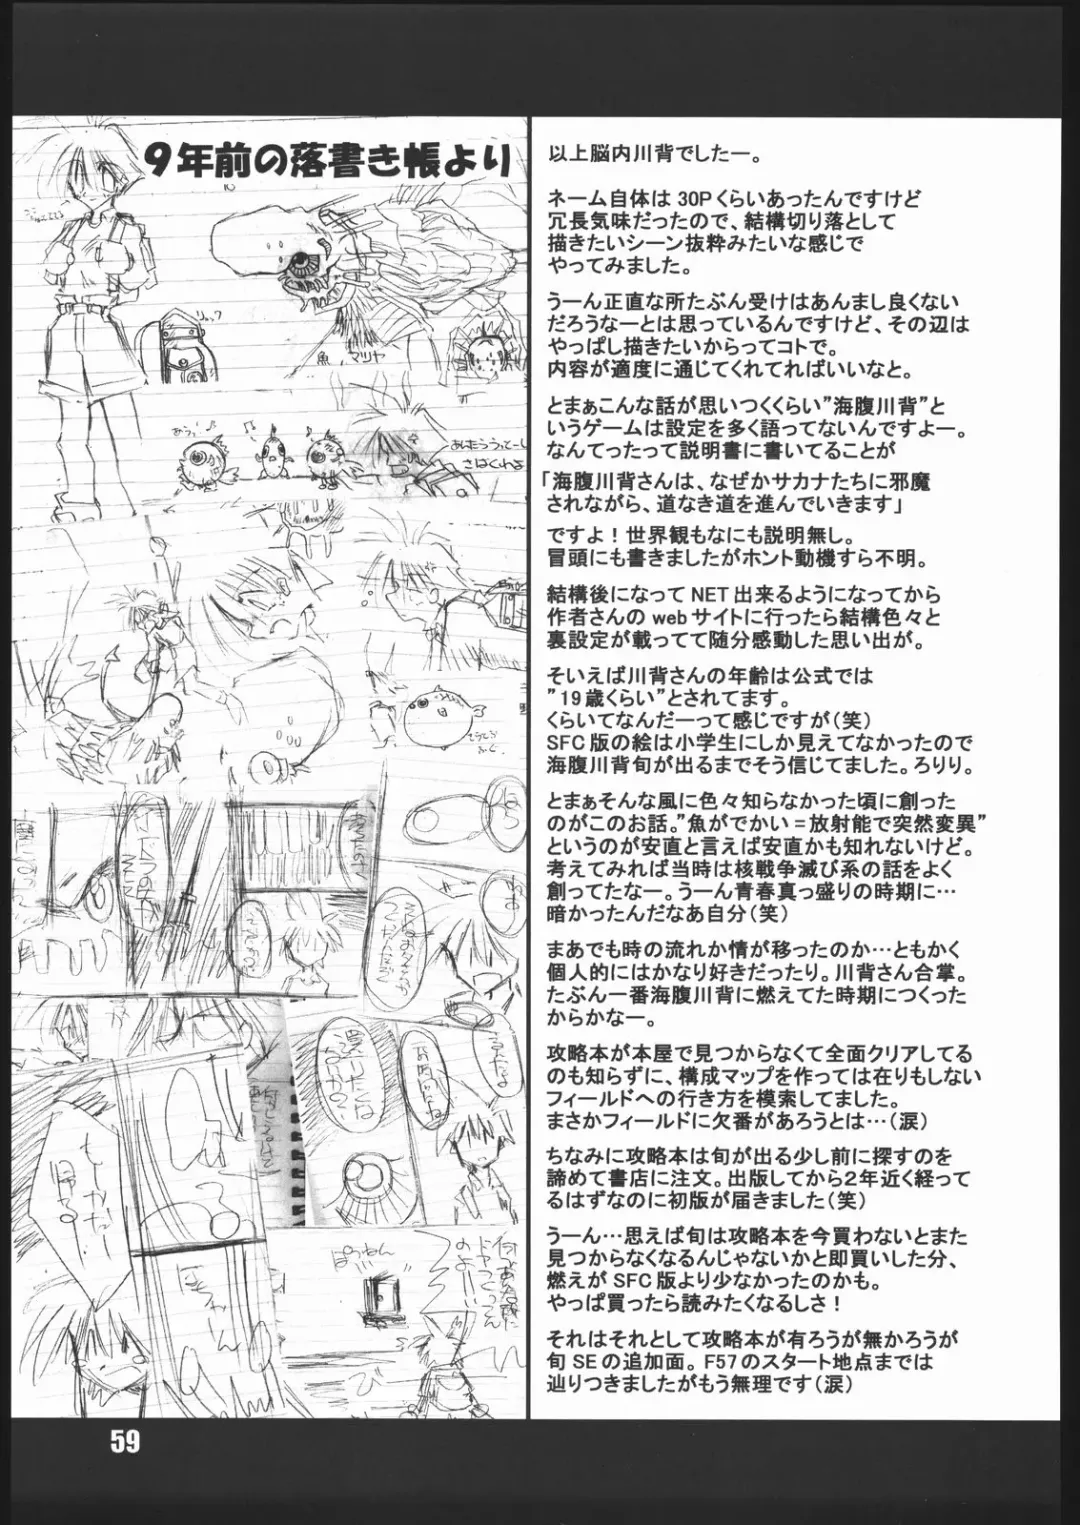 9年前の落書き帳より
リュック
魚
マツヤ
あうっ!
以上脳内川背でしたー。
ネーム自体は30Pくらいあったんですけど
冗長気味だったので、結構切り落として
描きたいシーン抜粋みたいな感じで
やってみました。
うーん正直な所たぶん受けはあんまし良くない
だろうなーとは思っているんですけど、その辺は
やっぱし描きたいからってコトで。
内容が適度に通じてくれてればいいなと。
とまぁこんな話が思いつくくらい”海腹川背”と
いうゲームは設定を多く語ってないんですよー。
なんてったって説明書に書いてることが
「海腹川背さんは、なぜかサカナたちに邪魔
されながら、道なき道を進んでいきます」
ですよ!世界観もなにも説明無し。
冒頭にも書きましたがホント動機すら不明。
結構後になってNET出来るようになってから
作者さんのwebサイトに行ったら結構色々と
裏設定が載ってて随分感動した思い出が。
そいえば川背さんの年齢は公式では
”19歳くらい”とされてます。
くらいてなんだーって感じですが(笑)
SFC版の絵は小学生にしか見えてなかったので
海腹川背旬が出るまでそう信じてました。ろりり。
とまぁそんな風に色々知らなかった頃に創った
のがこのお話。”魚がでかい=放射能で突然変異”
というのが安直と言えば安直かも知れないけど。
考えてみれば当時は核戦争滅び系の話をよく
創ってたなー。うーん青春真っ盛りの時期に…
暗かったんだなあ自分(笑)
まあでも時の流れか情が移ったのか…ともかく
個人的にはかなり好きだったり。川背さん合掌。
たぶん一番海腹川背に燃えてた時期につくった
からかなー。
攻略本が本屋で見つからなくて全面クリアしてる
のも知らずに、構成マップを作っては在りもしない
フィールドへの行き方を模索してました。
まさかフィールドに欠番があろうとは…(涙)
ちなみに攻略本は旬が出る少し前に探すのを
諦めて書店に注文。出版してから2年近く経って
るはずなのに初版が届きました(笑)
うーん…思えば旬は攻略本を今買わないとまた
見つからなくなるんじゃないかと即買いした分、
燃えがSFC版より少なかったのかも。
やっぱ買ったら読みたくなるしさ!
それはそれとして攻略本が有ろうが無かろうが
旬SEの追加面。F57のスタート地点までは
辿りつきましたがもう無理です(涙)
59